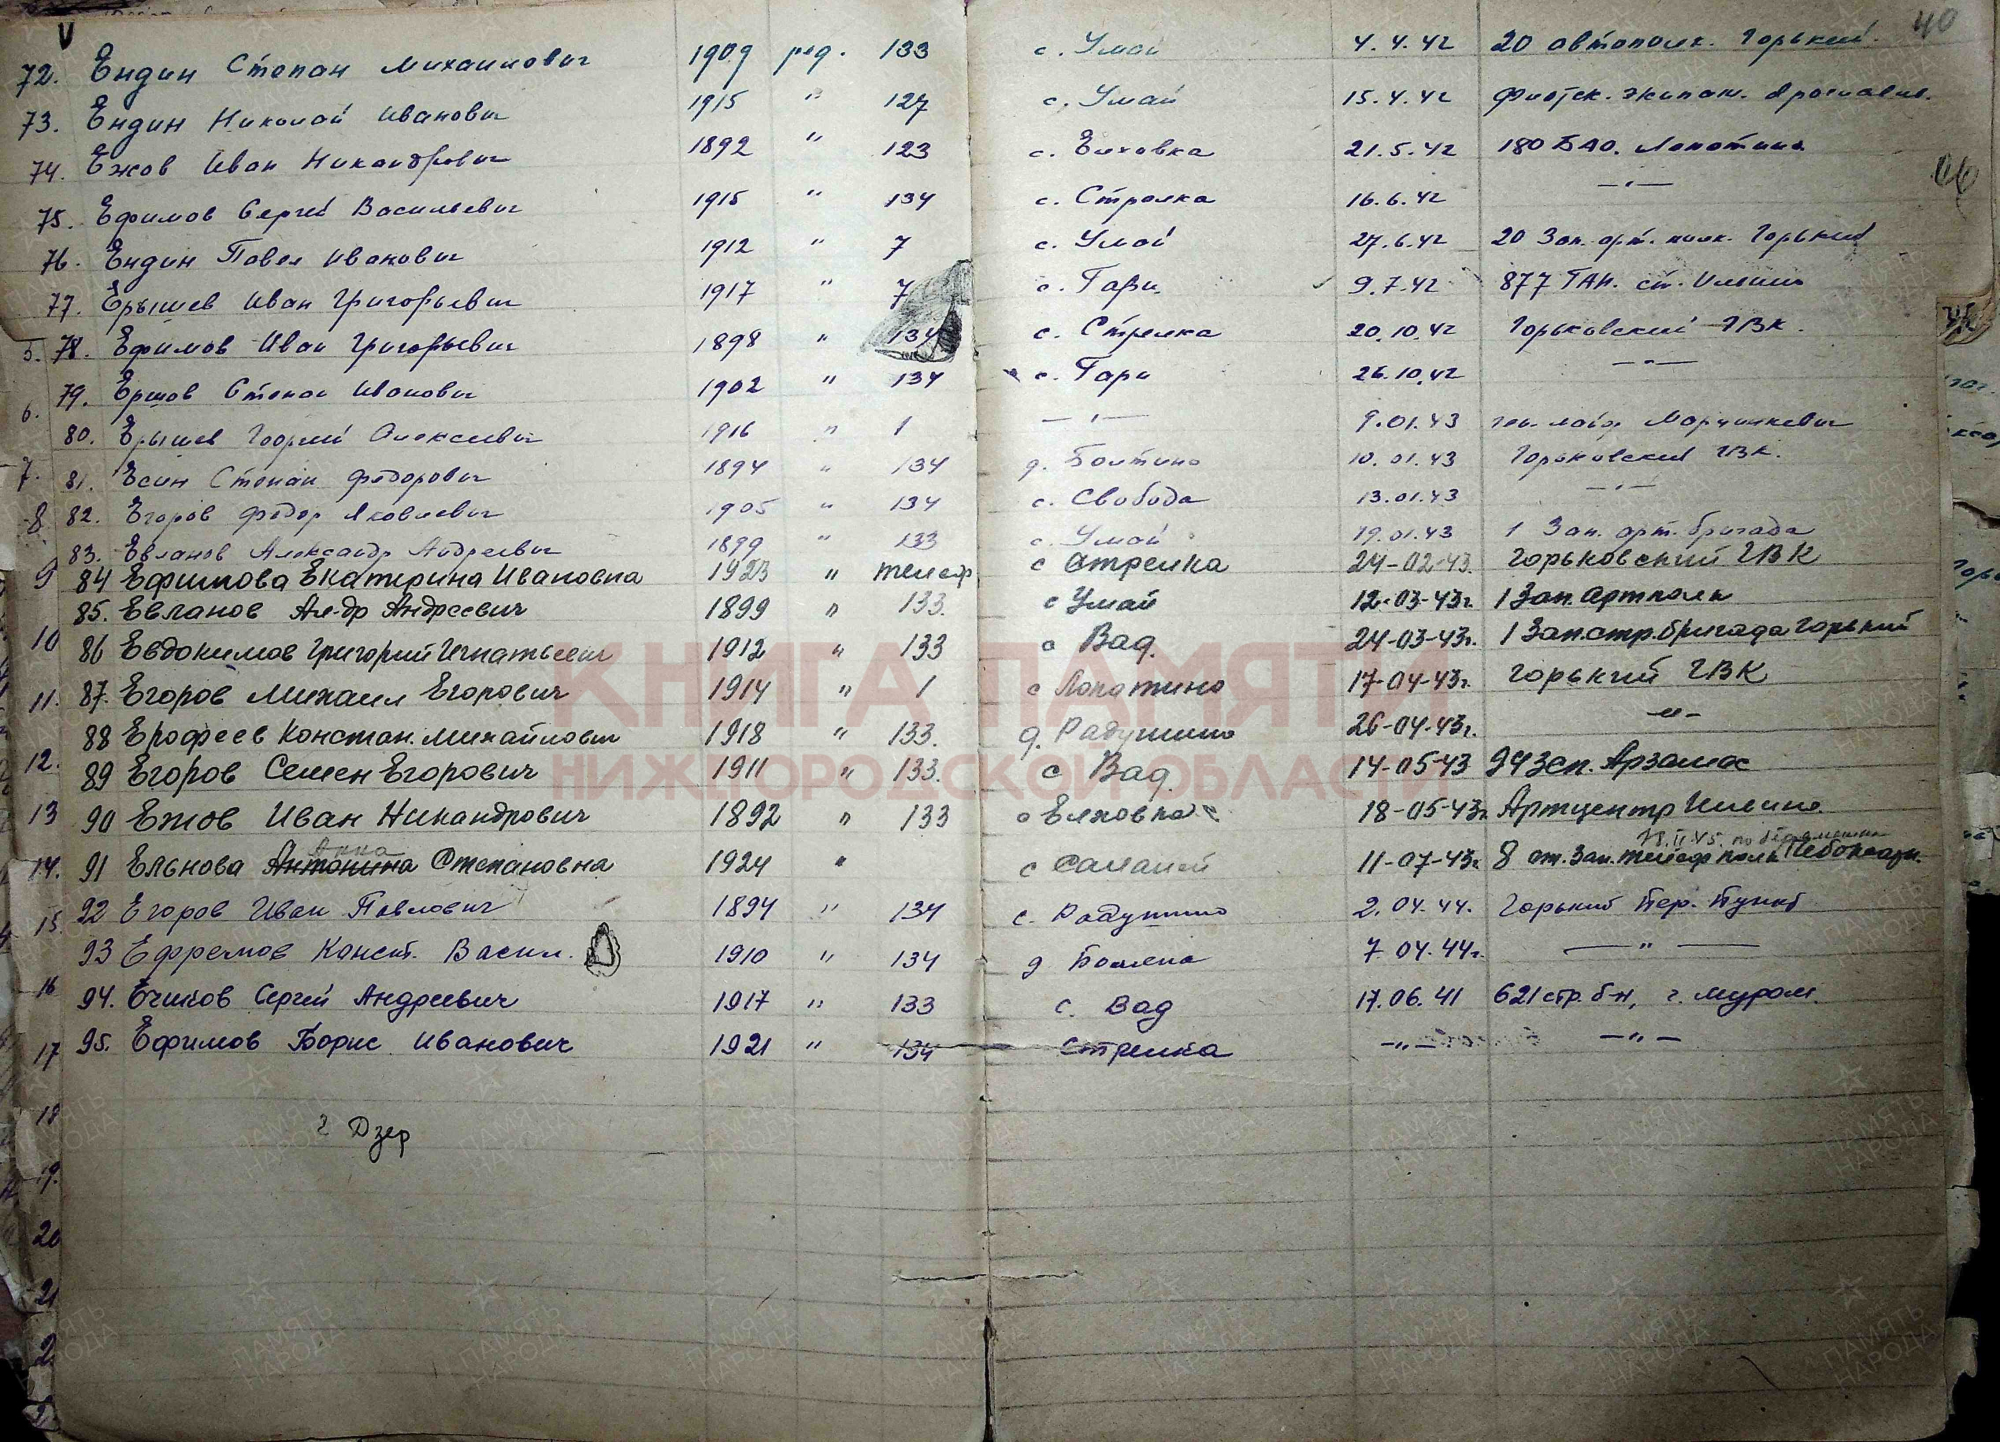 40
72. Ендин Степан Михаилович 1909 ряд. 133 с. Умай 4.4.42 20 автополк. Горький.
73. Ендин Николай Иванович 1915 " 127 с. Умай 15.4.42 Флотск. экипаж. Ярославль.
74. Ежов Иван Никандрович 1892 " 123 с. Елховка 21.5.42 180 БАО. Лопатино
75. Ефимов Сергей Васильевич 1915 " 134 с. Стрелка 16.6.42 —"—
76. Ендин Павел Иванович 1912 " 7 с. Умай 27.6.42 20 Зап. арт. полк. Горький
77. Ерышев Иван Григорьевич 1917 " 7 с. Гари 9.7.42 877 ГАП. ст. Ильино
5. 78. Ефимов Иван Григорьевич 1898 " 134 с. Стрелка 20.10.42 Горьковский ГВК.
79. Ершов Степан Иванович 1902 " 134 с. Гари 26.10.42 —"—
6. 80. Ерышев Георгий Алексеевич 1916 " 1 —"— 9.01.43 ген. майор Марцинкевич
7. 81. Есин Степан Федорович 1894 " 134 д. Болтино 10.01.43 Горьковский ГВК.
8 82. Егоров Федор Яковлевич 1905 " 134 с. Свобода 13.01.43 —"—
83. Евланов Александр Андреевич 1899 " 133 с. Умай 19.01.43 1 Зап. арт. бригада
9 84 Ефимова Екатерина Ивановна 1923 " телеф с Стрелка 24-02-43. Горьковский ГВК
85. Евланов Ал-др Андреевич 1899 " 133. с Умай 12-03-43г. 1 Зап. Артполк
10 86 Евдокимов Григорий Игнатьевич 1912 " 133 с Вад. 24-03-43г. 1 Зап.стр.бригада Горький
11. 87. Егоров Михаил Егорович 1914 " 1 с Лопатино 17-04-43г. Горький ГВК
88 Ерофеев Констан. Михайлович 1918 " 133. д. Радушино 26-04-43г. —"—
12. 89 Егоров Семен Егорович 1911 " 133. с Вад. 14-05-43 94 зсп. Арзамас
13 90 Ежов Иван Никандрович 1892 " 133 с Елховка 18-05-43г. Артцентр Ильино
Анна 18.II.45. по беременности
14. 91 Ельнова Антонина Степановна 1924 " с Салалей 11-07-43г. 8 от. Зап. телеф полк Чебоксары.
15. 92 Егоров Иван Павлович 1894 " 134 с. Радушино 2.04.44. Горький Пер. Пункт
93 Ефремов Конст. Васил. 1910 " 134 д 7.04.44г. —"—
16 94. Ечиков Сергей Андреевич 1917 " 133 с. Вад 17.06.41 621 стр. б-н, г. Муром.
17 95. Ефимов Борис Иванович 1921 " 134 Стрелка —"— —"—
18
г Дзер
19.
20
21
2
2
КНИГА ПАМЯТИ
НИЖЕГОРОДСКОЙ ОБЛАСТИ
ПАМЯТЬ НАРОДА